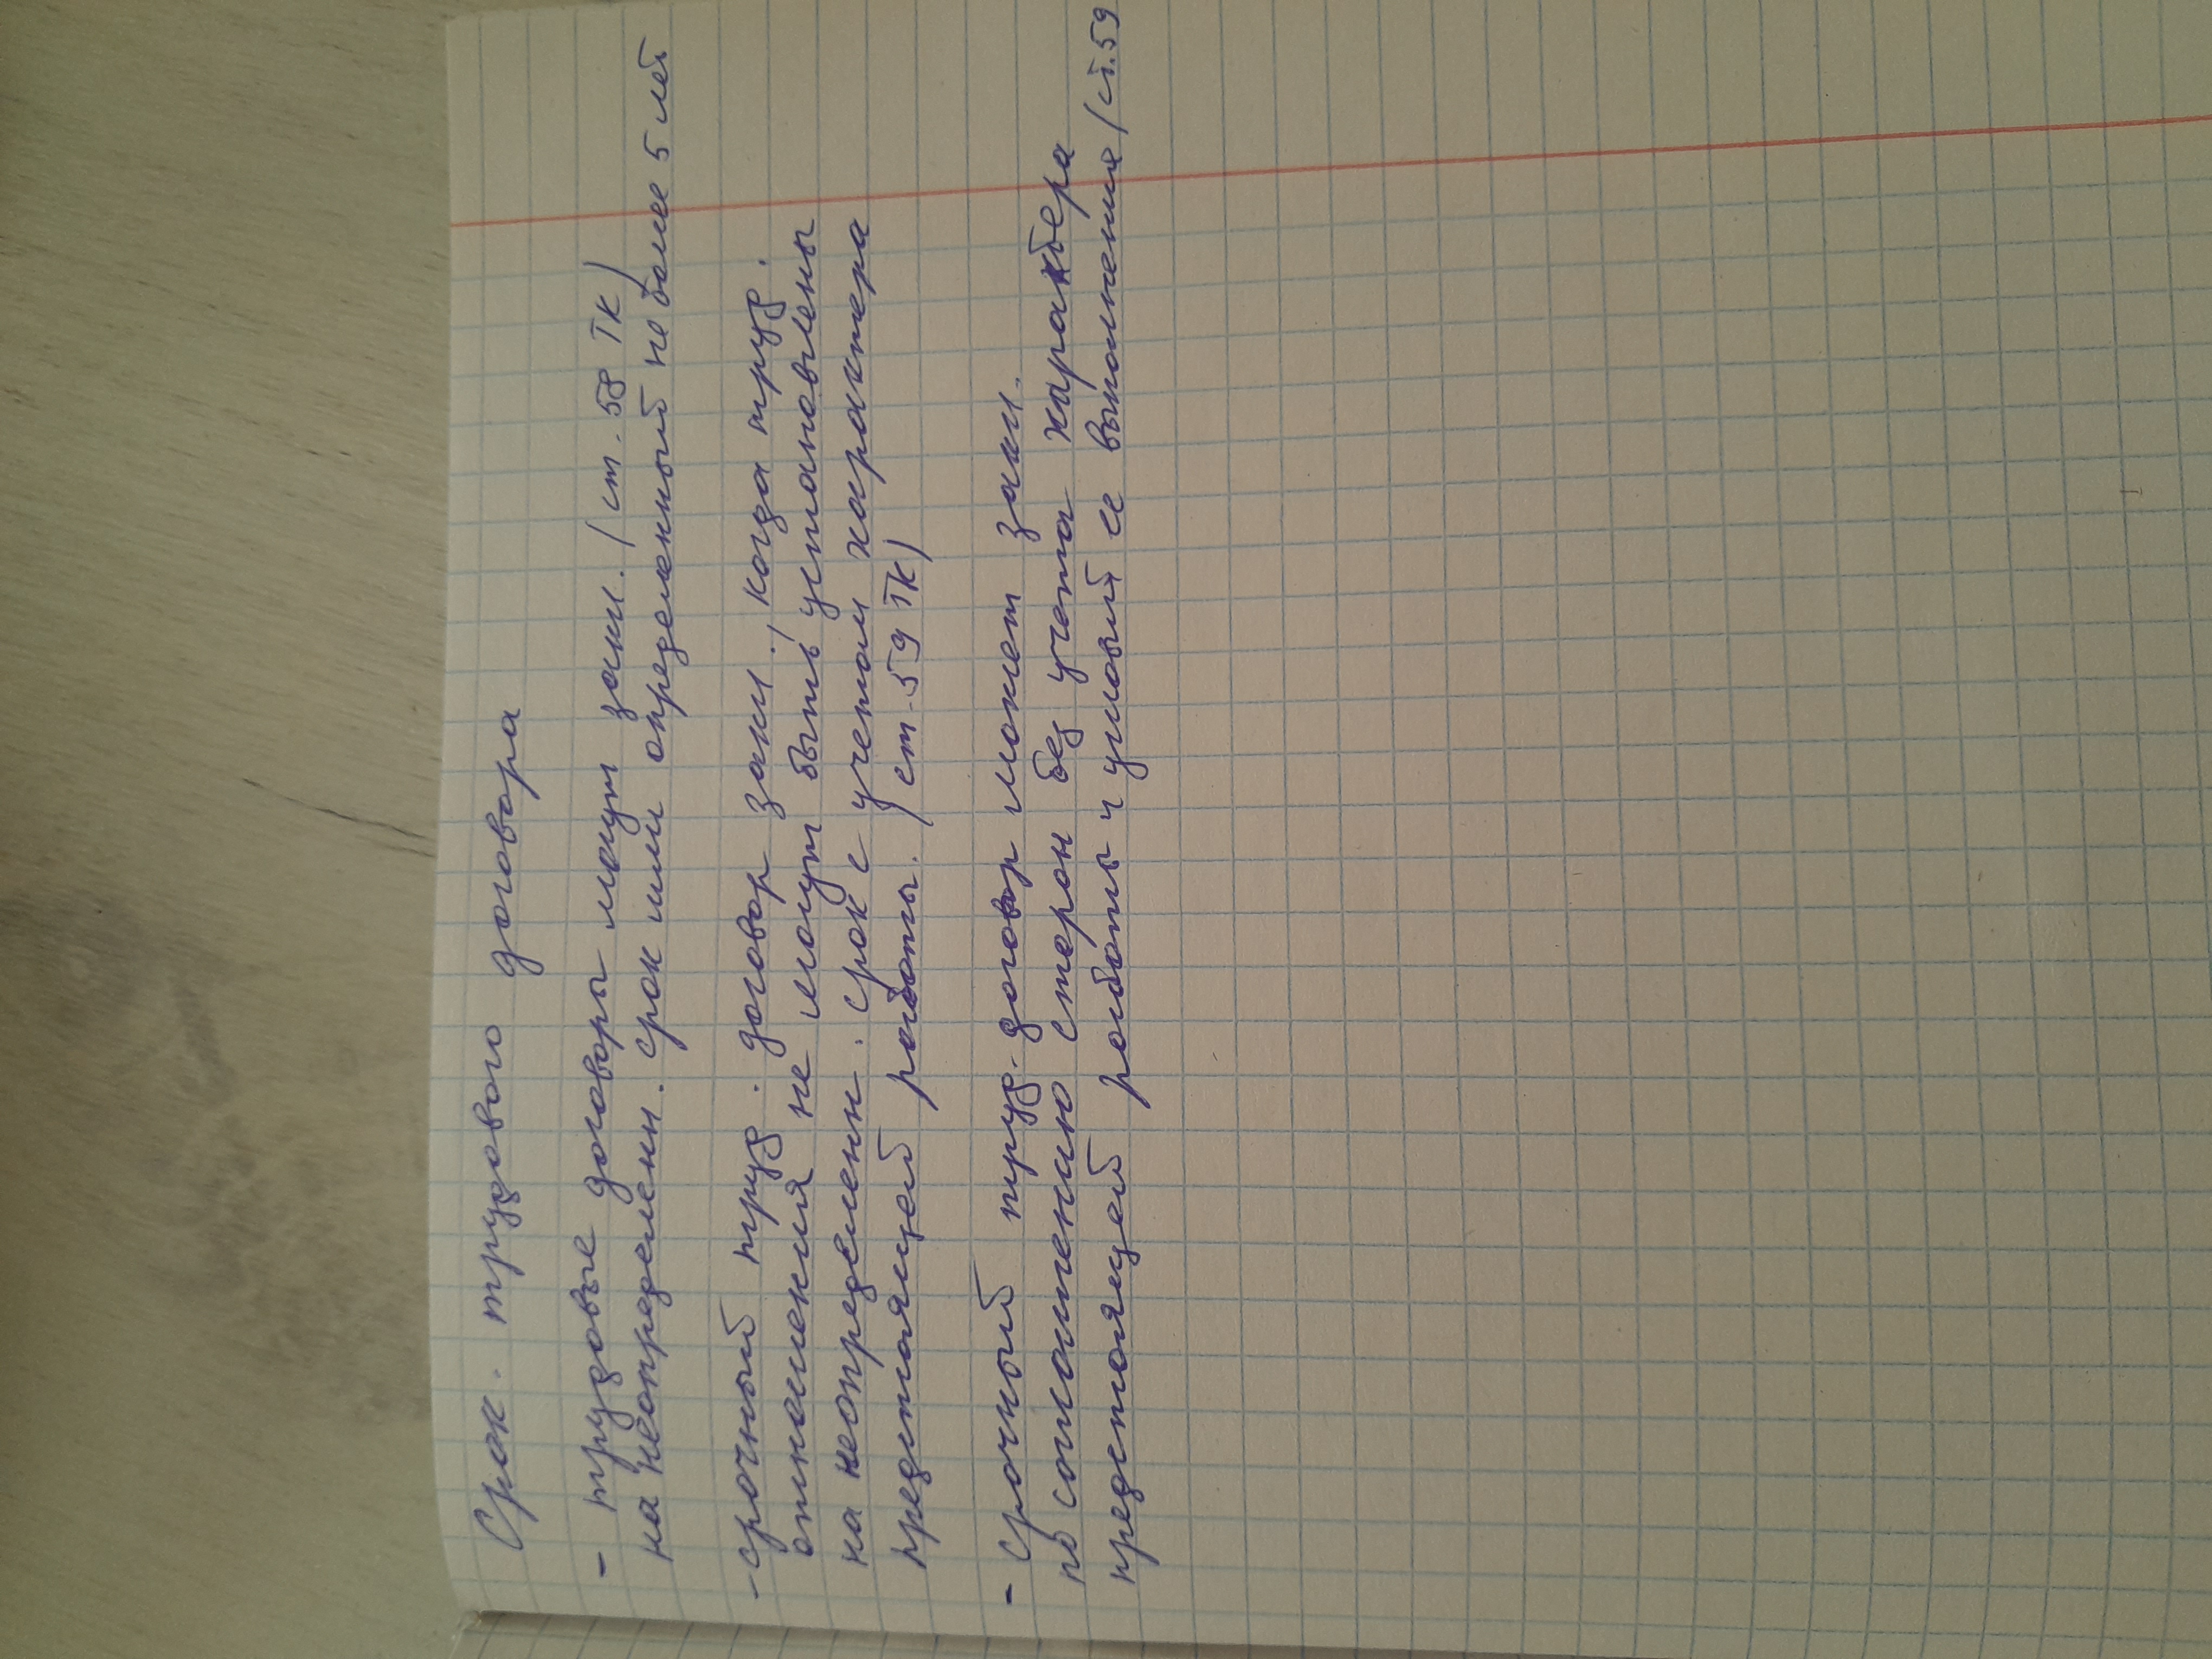 Срок. трудового договора
- трудовые договоры могут закл. (ст. 58 ТК)
на неопределенн. срок или определенный не более 5 лет
- срочный труд. договор закл., когда труд.
отношения не могут быть установлены
на неопределенн. срок с учетом характера
предстоящей работы. (ст. 59 ТК)
- Срочный труд. договор может закл.
по соглашению сторон без учета характера
предстоящей работы и условий ее выполнения (ст. 59